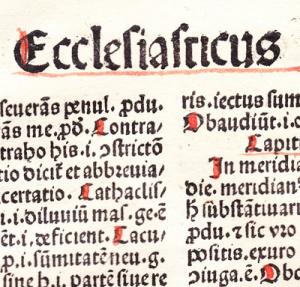 Ecclesiasticus
seuerãs penul. ꝓdu.
rãs me. ꝓd̃. Contra/
traho his .i. ↄstrictõ
tio dicit̃ et abbreuia/
certatio. Cathaclis/
.i. diluuiũ mas. ge. ẽ
ẽt .i. deficient. Lacu/
p .i. sũmitatẽ neu. g.
sine h .i. partẽ siue re
ris. iectus sum
Obaudiũt .i. o
Capit
In meridia
die. meridian
h̃ substãtiuaru
ꝓdu. ⁊ sic vro
positis. exuro
ↄiuga. ẽ. Obo